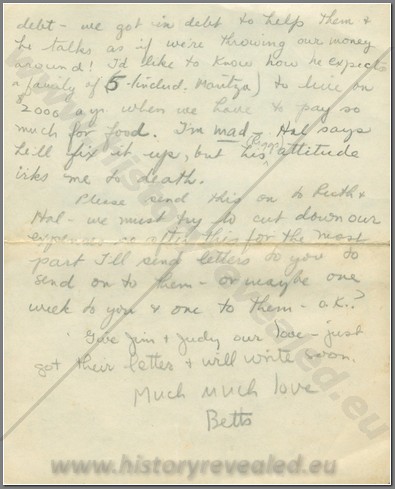 debt - we got in debt to help them &
he talks as if we're throwing our money
around! I'd like to know how he expects
a family of 5 - (includ. Maritza) to live on
$2000 a yr. when we have to pay so
much for food. I'm mad - Hal says
he'll fix it up, but his attitude
irks me to death.
Please send this on to Ruth &
Hal - we must try to cut down our
expenses so after this for the most
part I'll send letters to you to
send on to them - or maybe one
week to you & one to them - o.k.?
Give Jim & Judy our love - just
got their letter & will write soon.
Much much love
Betts
www.historyrevealed.eu
www.historyrevealed.eu
www.historyrevealed.eu